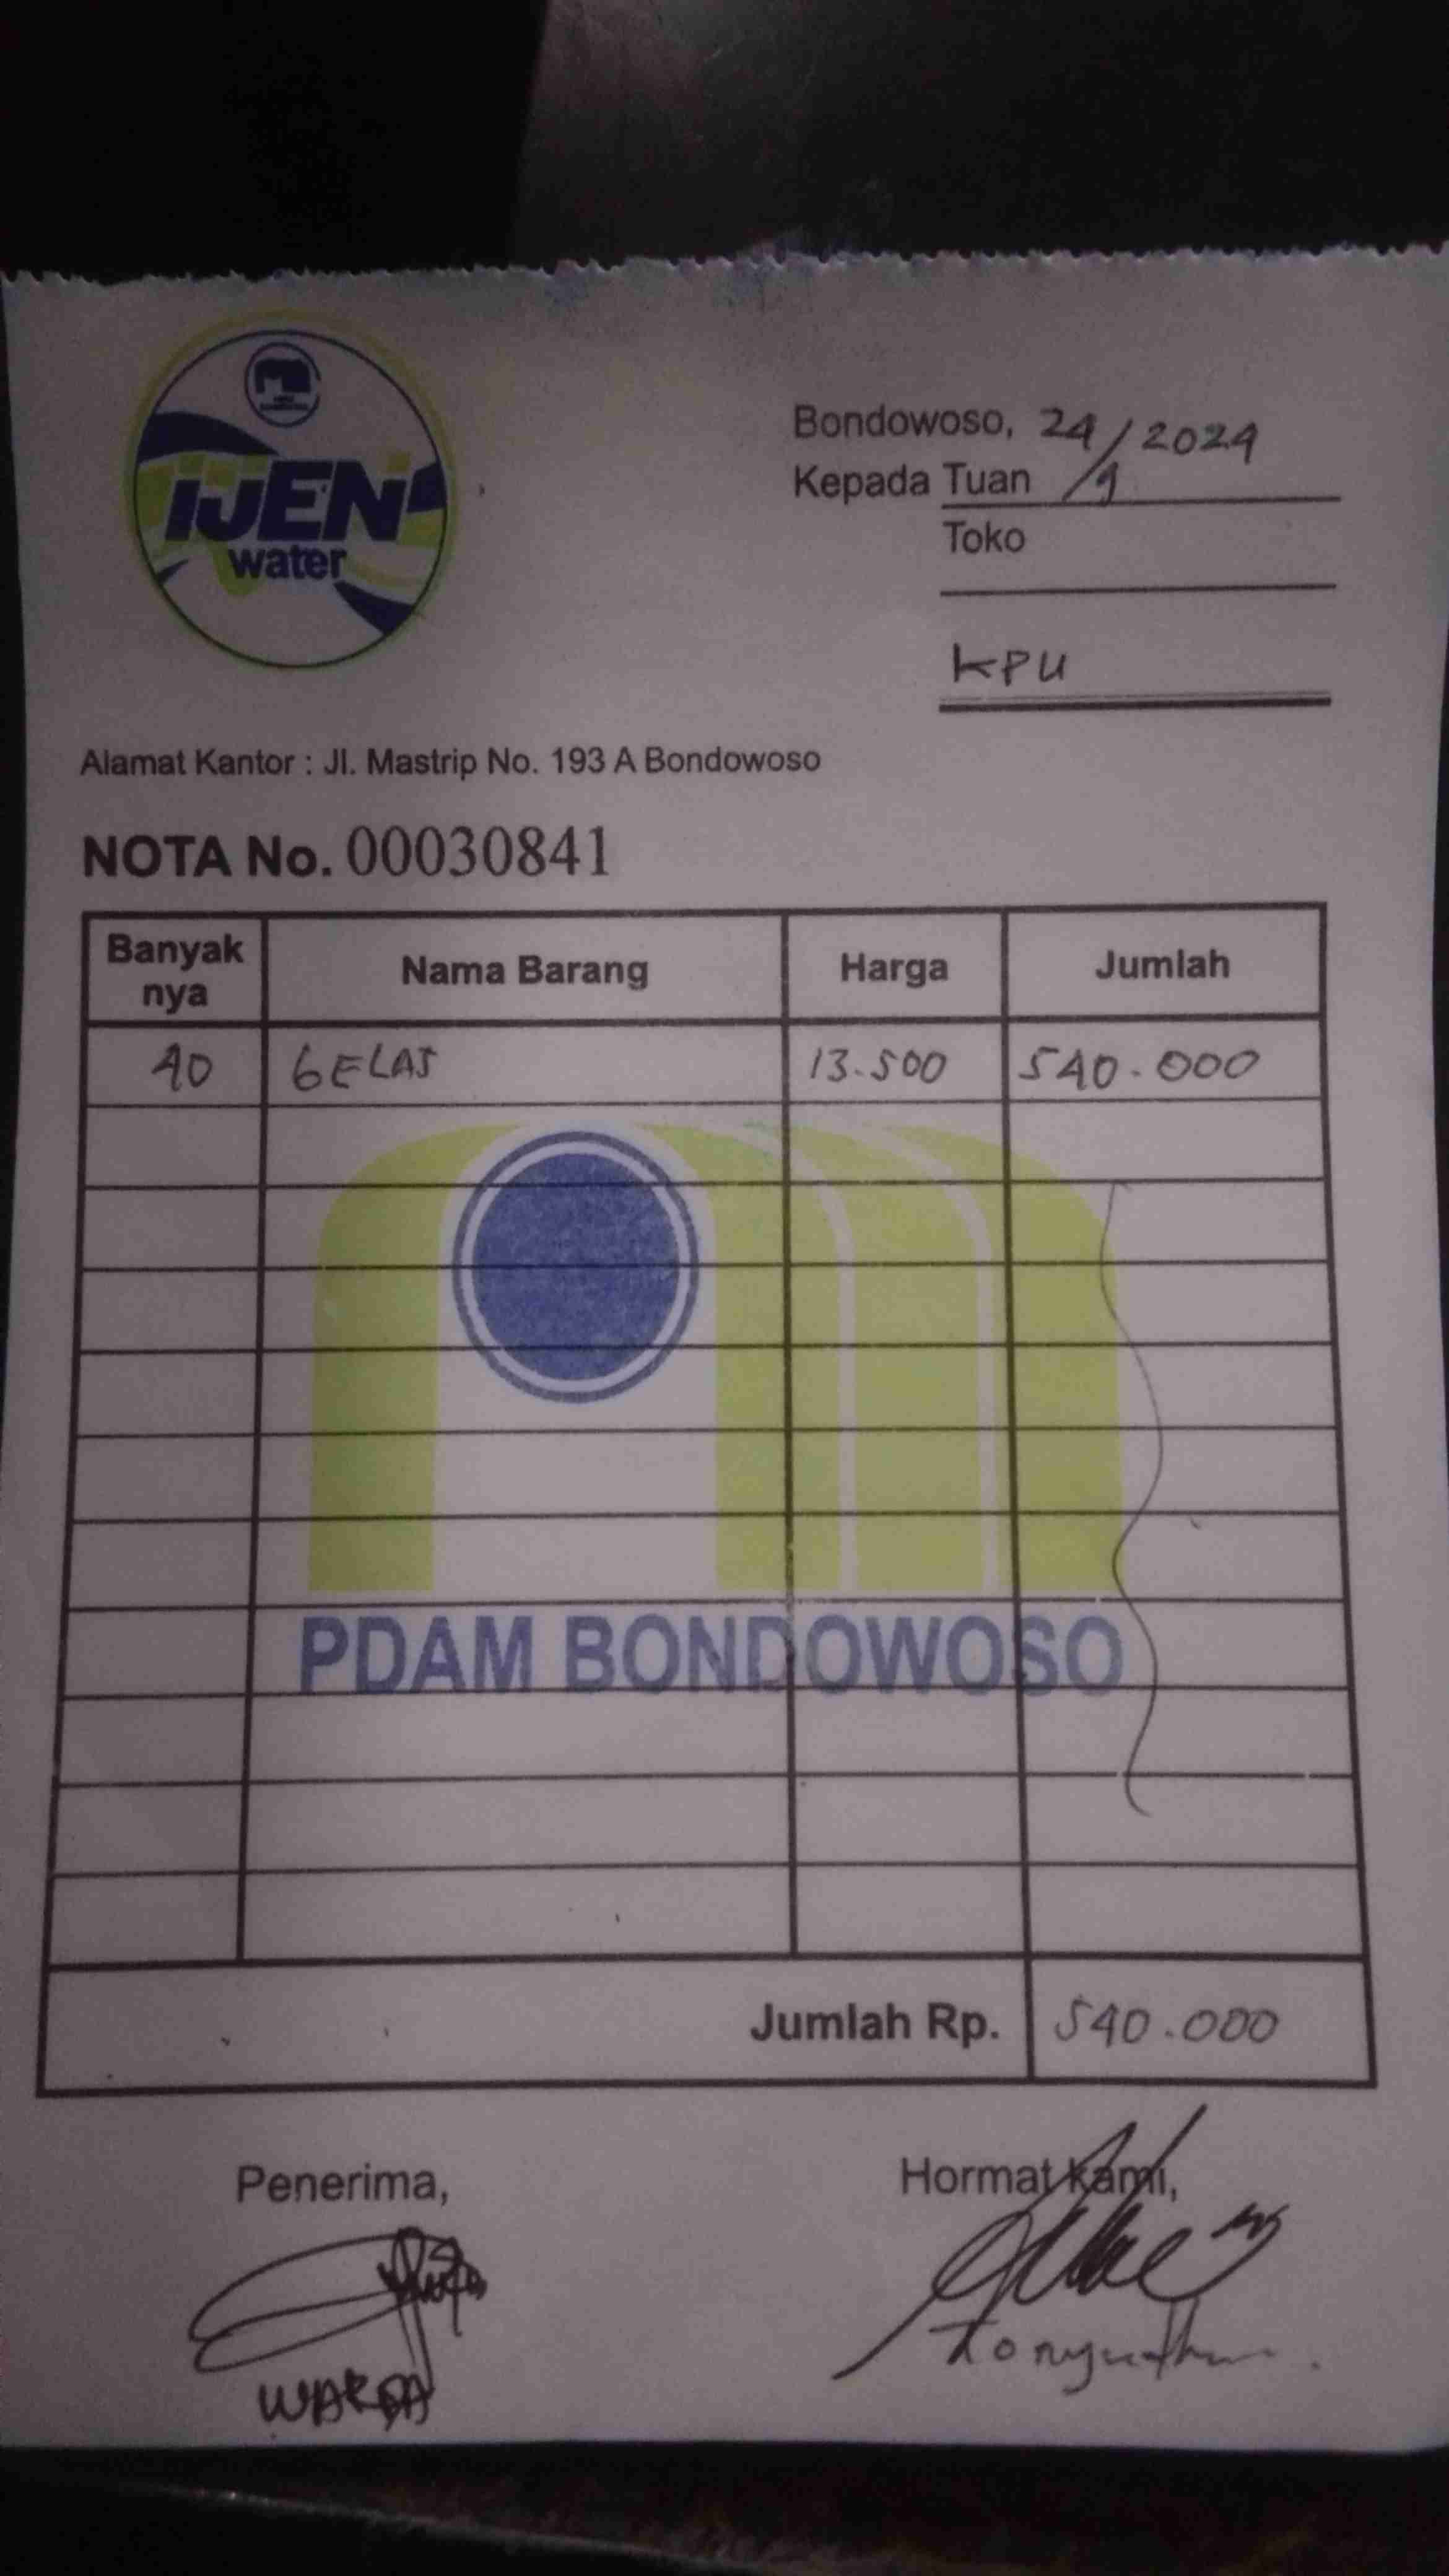 IJEN
water
Bondowoso, 24/1/2024
Kepada Tuan
Toko
KPU
Alamat Kantor : Jl. Mastrip No. 193 A Bondowoso
NOTA No. 00030841
Banyak nya Nama Barang Harga Jumlah
40 GELAS 13.500 540.000
PDAM BONDOWOSO
Jumlah Rp. 540.000
Penerima, Hormat Kami,
WARDA